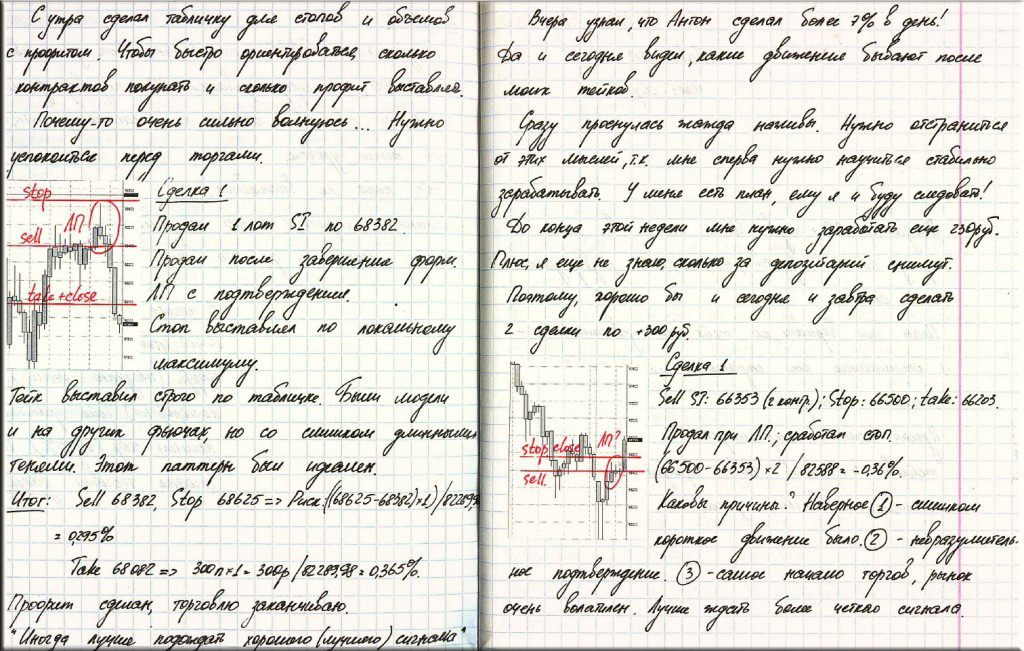 С утра сделал табличку для стопов и объемов
с профитом. Чтобы быстро ориентироваться, сколько
контрактов покупать и сколько профит выставлял.
Почему-то очень сильно волнуюсь... Нужно
успокоиться перед торгами.
stop
ЛП
sell
take+close
Сделка 1
Продал 1 лот SI по 68382.
Продал после завершение форм.
ЛП с подтверждением.
Стоп выставлял по локальному
максимуму.
Тейк выставил строго по табличке. Были модели
и на других фьючах, но со слишком длинными
тенями. Этот паттерн был идеален.
Итог: Sell 68382, Stop 68625 => Риск: ((68625-68382)×1)/82289,98
= 0,295%
Take 68082 => 300п×1 = 300р/82289,98 = 0,365%.
Профит сделан, торговлю заканчиваю.
"Иногда лучше подождать хорошего (лучшего) сигнала"
Вчера узнал, что Антон сделал более 7% в день!
Да и сегодня видел, какие движение бывают после
моих тейков.
Сразу проснулась жажда наживы. Нужно отстраниться
от этих мыслей, т.к. мне сперва нужно научиться стабильно
зарабатывать. У меня есть план, ему я и буду следовать!
До конца этой недели мне нужно заработать еще 230руб.
Плюс, я еще не знаю, сколько за депозитарий снимут.
Поэтому, хорошо бы и сегодня и завтра сделать
2 сделки по +300руб.
stop close
ЛП?
sell.
Сделка 1
Sell SI: 66353 (2 контр.); Stop: 66500; take: 66203.
Продал при ЛП.; сработал стоп.
(66500-66353)×2 / 82588 = -0,36%.
Каковы причины? Наверное ① - слишком
короткое движение было. ② - невразумитель-
ное подтверждение. ③ - самое начало торгов, рынок
очень волатилен. Лучше ждать более четкого сигнала.